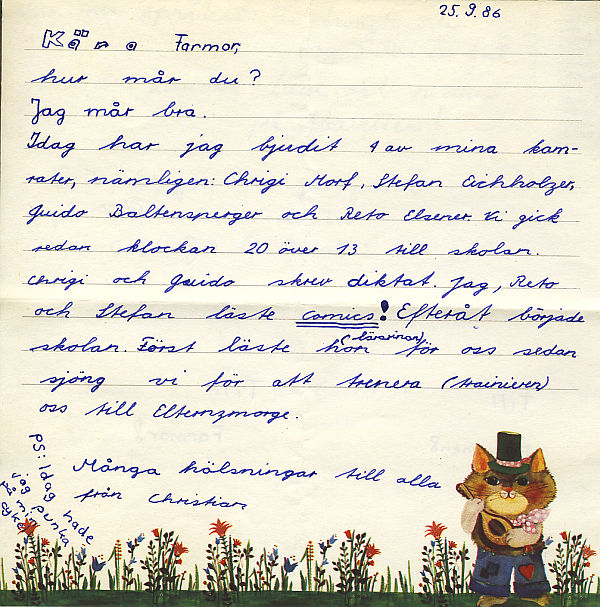 25.9.86
Kära Farmor,
hur mår du?
Jag mår bra.
Idag har jag bjudit 4 av mina kam-
rater, nämligen: Chrigi Morf, Stefan Eichholzer,
Guido Baltensperger och Reto Elsener. Vi gick
sedan klockan 20 över 13 till skolan.
Chrigi och Guido skrev diktat. Jag, Reto
och Stefan läste comics! Efteråt började
skolan. Först läste hon (lärarinnan) för oss sedan
sjöng vi för att trenera (trainieren)
oss till Elternzmorge.
Många hälsningar till alla
från Christian
PS: Idag hade
jag punka
på min
cykel